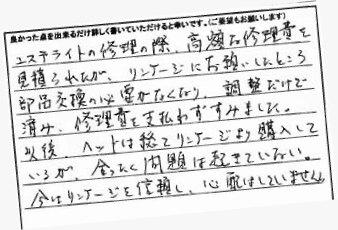 良かった点を出来るだけ詳しく書いていただけると幸いです。(ご要望もお願いします)
エステライトの修理の際、高額な修理費を
見積られたが、リンケージにお願いしたところ
部品交換の必要がなくなり、調整だけで
済み、修理費を支払わずすみました。
以後、ヘッドは総てリンケージより購入して
いるが、全たく問題は起きていない。
今はリンケージを信頼し、心配はしていません